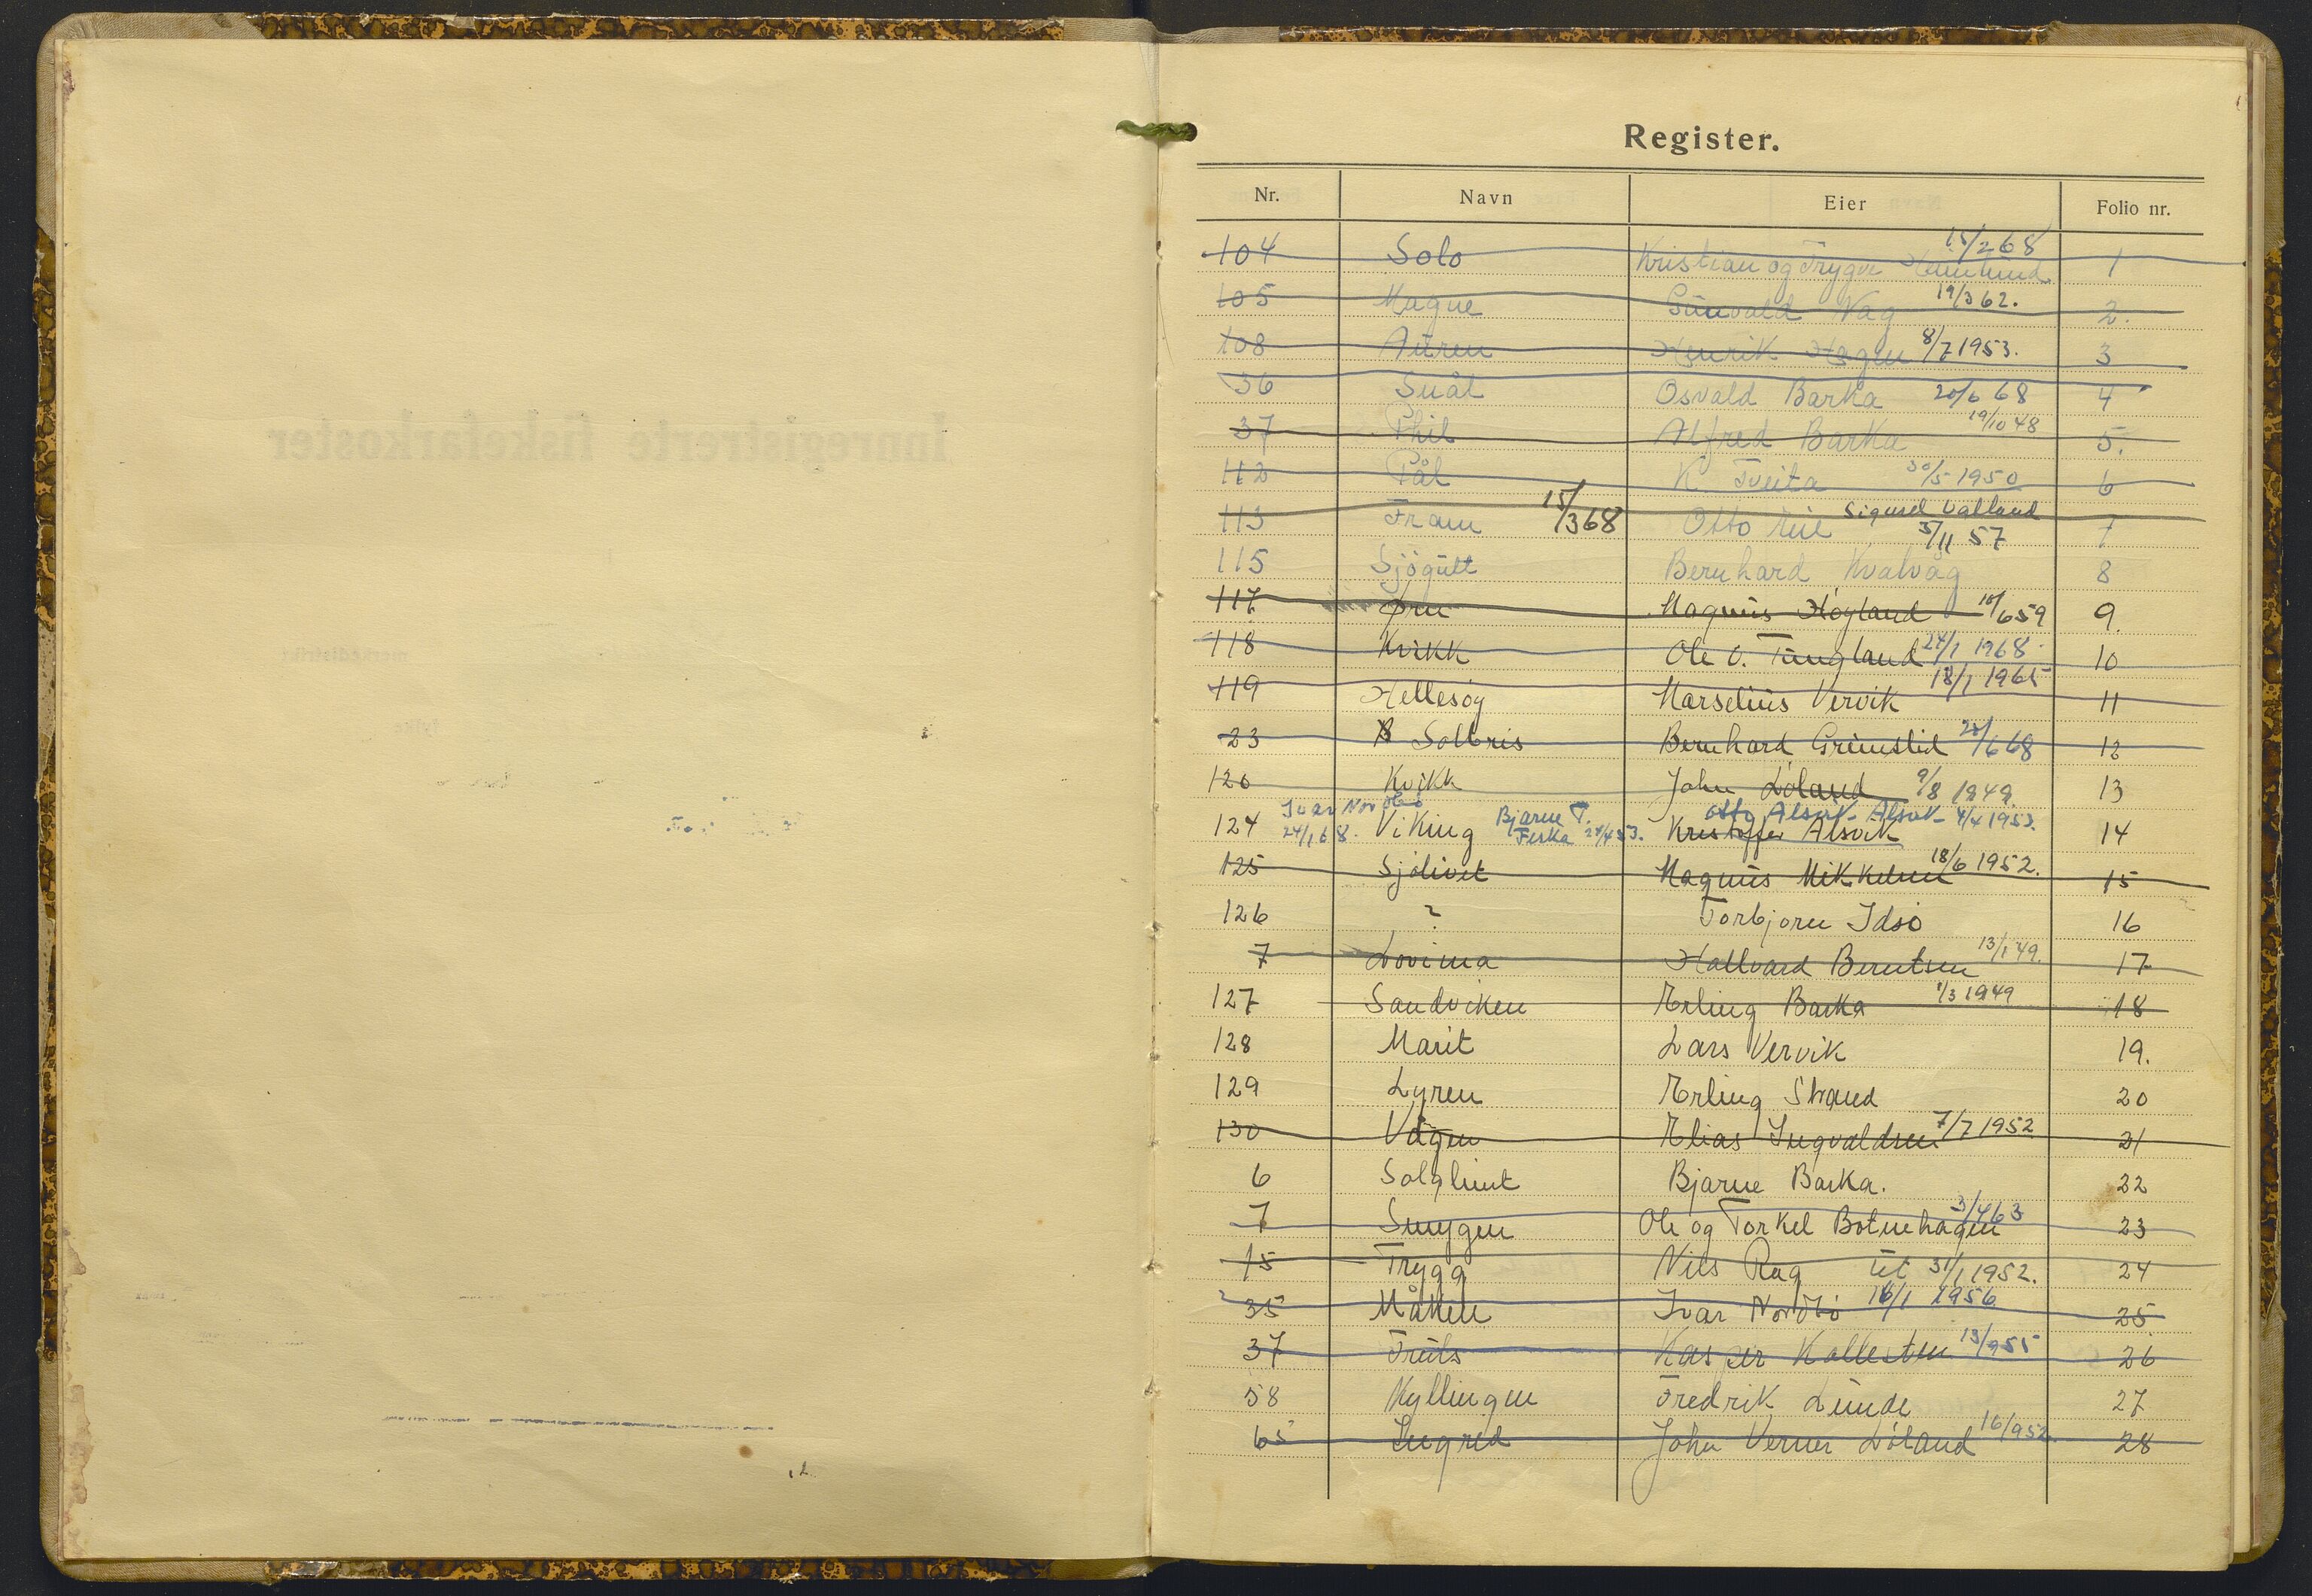 Innregistrerte fiskefarkoster
merkedistrikt
fylke
Register.
Nr. Navn Eier Folio nr.
104 Solo Kristian og Trygve 15/2 68 1
105 Magne Gunvald Våg 19/3 62. 2.
108 Auren Henrik Hagen 8/7 1953. 3
36 Snål Osvald Barka 20/6 68 4
37 Phil Alfred Barka 19/10 48 5.
112 Pål K Tveita 30/5 1950 6
113 Fram 15/3 68 Otto Sigurd Valland 5/11 57 7
115 Sjøgutt Bernhard Kvalvåg 8
117 Magnus Høyland 10/6 59 9.
118 Kvikk Ole O. Tungland 24/1 1968 10
119 Hellesøy Marselius Vervik 18/1 1965 11
23 Solbris Bernhard Grimslid 20/6 68 12
120 Kvikk John Løland 9/8 1949. 13
Ivar Nordbø Bjarne T. Otto Alsvik Alsvik 4/4 1953.
124 24/1 68. Viking Feska 24/4 53. Kristoffer Alsvik 14
125 Sjølivet Magnus Mikkelsen 18/6 1952. 15
126 ? Torbjørn Idsø 16
7 Lovina Hallvard Berntsen 13/1 49. 17
127 Sandviken Erling Barka 1/3 1949 18
128 Marit Lars Vervik 19.
129 Lyren Erling Strand 20
130 Vågen Elias Ingvaldsen 7/7 1952 21
6 Solglimt Bjarne Barka. 22
7 Smygen Ole og Torkel Botnehagen 3/4 63 23
15 Trygg Nils Rag ut 31/1 1952. 24
35 Måken Ivar Nordbø 16/1 1956 25
37 Truls Kasper Kallesten 13/9 55 26
58 Kyllingen Fredrik Lunde 27
65 Ingrid John Verner Løland 16/9 52. 28